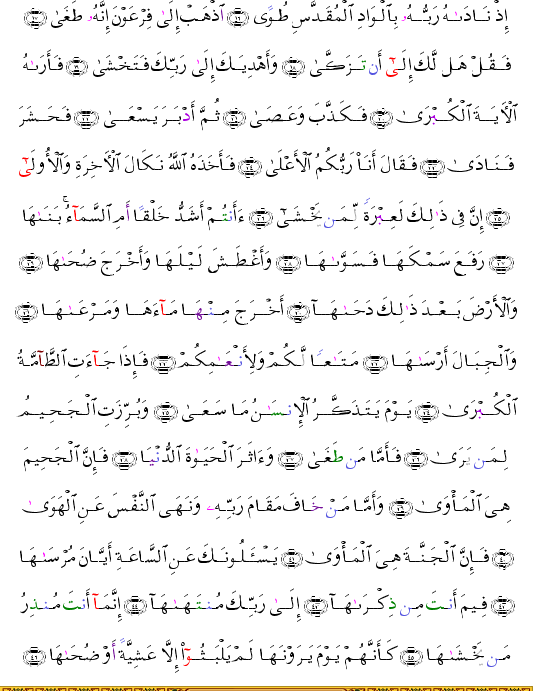 إِذْ نَادَىٰهُ رَبُّهُۥ بِٱلْوَادِ ٱلْمُقَدَّسِ طُوًى ١٦ ٱذْهَبْ إِلَىٰ فِرْعَوْنَ إِنَّهُۥ طَغَىٰ ١٧
فَقُلْ هَل لَّكَ إِلَىٰٓ أَن تَزَكَّىٰ ١٨ وَأَهْدِيَكَ إِلَىٰ رَبِّكَ فَتَخْشَىٰ ١٩ فَأَرَىٰهُ
ٱلْـَٔايَةَ ٱلْكُبْرَىٰ ٢٠ فَكَذَّبَ وَعَصَىٰ ٢١ ثُمَّ أَدْبَرَ يَسْعَىٰ ٢٢ فَحَشَرَ
فَنَادَىٰ ٢٣ فَقَالَ أَنَا۠ رَبُّكُمُ ٱلْأَعْلَىٰ ٢٤ فَأَخَذَهُ ٱللَّهُ نَكَالَ ٱلْـَٔاخِرَةِ وَٱلْأُولَىٰٓ
٢٥ إِنَّ فِى ذَٰلِكَ لَعِبْرَةً لِّمَن يَخْشَىٰٓ ٢٦ ءَأَنتُمْ أَشَدُّ خَلْقًا أَمِ ٱلسَّمَآءُ ۚ بَنَىٰهَا
٢٧ رَفَعَ سَمْكَهَا فَسَوَّىٰهَا ٢٨ وَأَغْطَشَ لَيْلَهَا وَأَخْرَجَ ضُحَىٰهَا ٢٩
وَٱلْأَرْضَ بَعْدَ ذَٰلِكَ دَحَىٰهَآ ٣٠ أَخْرَجَ مِنْهَا مَآءَهَا وَمَرْعَىٰهَا ٣١
وَٱلْجِبَالَ أَرْسَىٰهَا ٣٢ مَتَٰعًا لَّكُمْ وَلِأَنْعَٰمِكُمْ ٣٣ فَإِذَا جَآءَتِ ٱلطَّآمَّةُ
ٱلْكُبْرَىٰ ٣٤ يَوْمَ يَتَذَكَّرُ ٱلْإِنسَٰنُ مَا سَعَىٰ ٣٥ وَبُرِّزَتِ ٱلْجَحِيمُ
لِمَن يَرَىٰ ٣٦ فَأَمَّا مَن طَغَىٰ ٣٧ وَءَاثَرَ ٱلْحَيَوٰةَ ٱلدُّنْيَا ٣٨ فَإِنَّ ٱلْجَحِيمَ
هِىَ ٱلْمَأْوَىٰ ٣٩ وَأَمَّا مَنْ خَافَ مَقَامَ رَبِّهِۦ وَنَهَى ٱلنَّفْسَ عَنِ ٱلْهَوَىٰ
٤٠ فَإِنَّ ٱلْجَنَّةَ هِىَ ٱلْمَأْوَىٰ ٤١ يَسْـَٔلُونَكَ عَنِ ٱلسَّاعَةِ أَيَّانَ مُرْسَىٰهَا
٤٢ فِيمَ أَنتَ مِن ذِكْرَىٰهَآ ٤٣ إِلَىٰ رَبِّكَ مُنتَهَىٰهَآ ٤٤ إِنَّمَآ أَنتَ مُنذِرُ
مَن يَخْشَىٰهَا ٤٥ كَأَنَّهُمْ يَوْمَ يَرَوْنَهَا لَمْ يَلْبَثُوٓا۟ إِلَّا عَشِيَّةً أَوْ ضُحَىٰهَا ٤٦